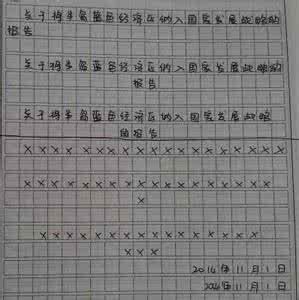 关于将半岛蓝色经济区纳入国家发展战略的
报告
关于将半岛蓝色经济区纳入国家发展战略的
报告
关于将半岛蓝色经济区纳入国家发展战略
的报告
×××××××××××××××××××
××××××××××××××××××
×
××××××××××××××××
×××
2016年11月1日
2016年11月1日